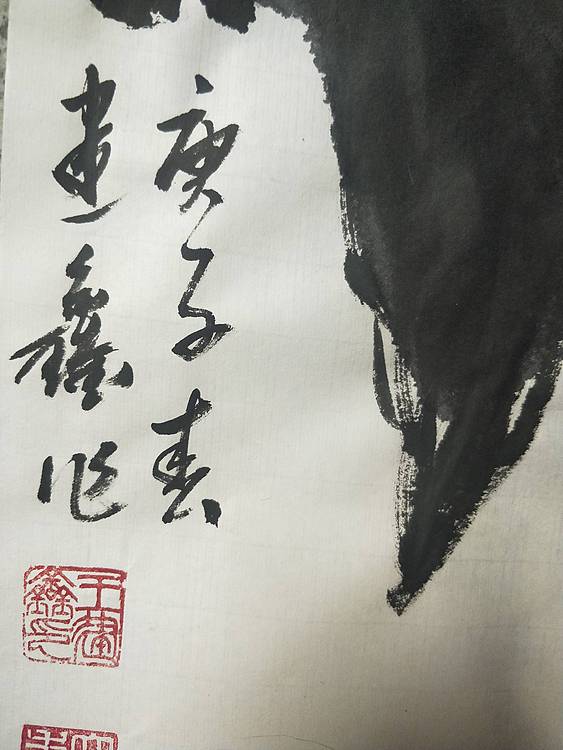 庚子春
建鑫作
于建
鑫印